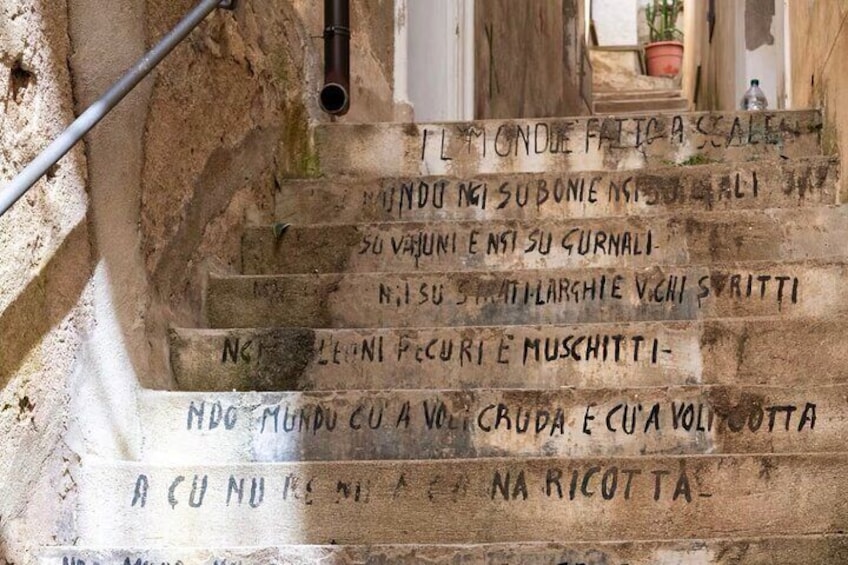 IL MONDU È FATTO A SCALE
MUNDU NGI SU BONI E NGI SU
SU VAJUNI E NGI SU GURNALI-
NGI SU STRATI LARGHI E VICHI STRITTI
LEONI PECURI E MUSCHITTI-
NDO MUNDU CU'A VOLI CRUDA E CU'A VOLI COTTA
A CU NU NA RICOTTA-
NDO MUNDU